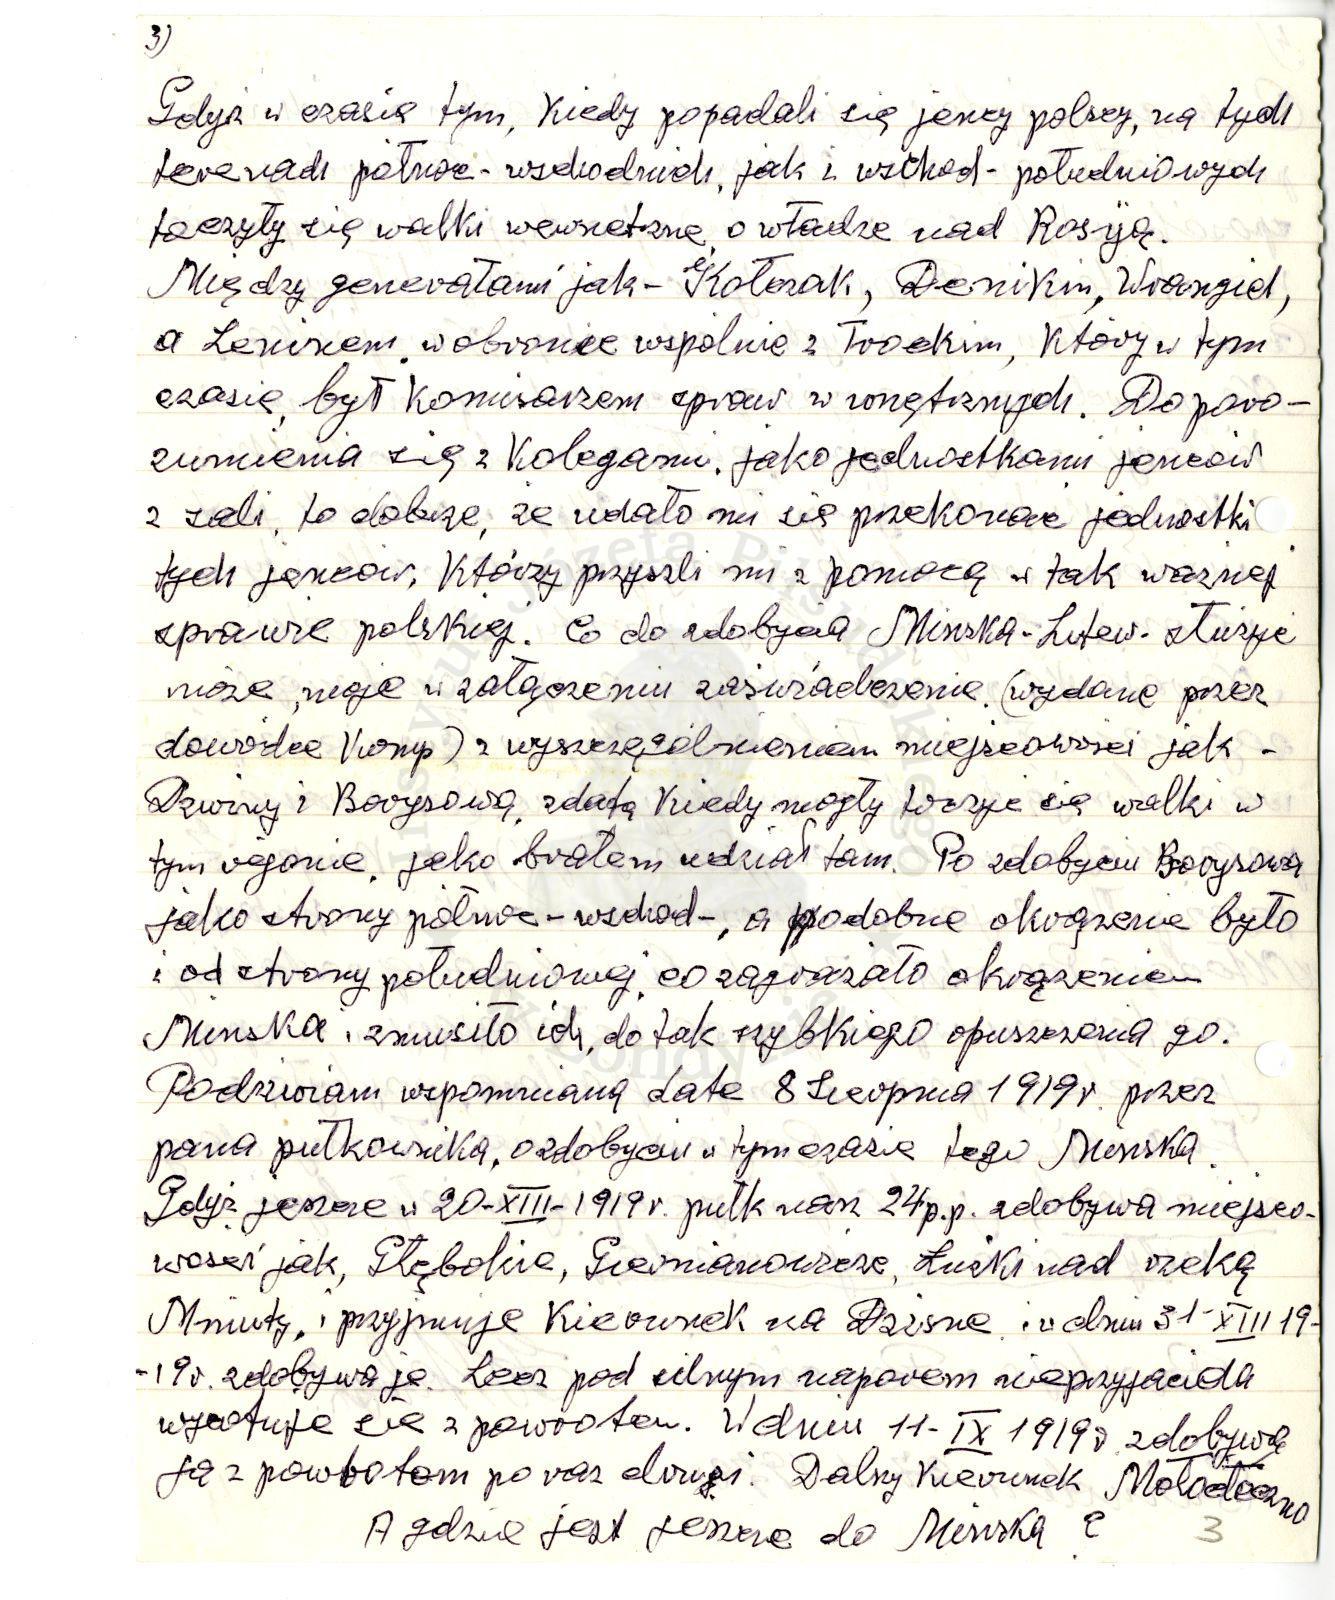 3)
Gdyż w czasię tym, kiedy popadali się jency polscy, na tych
terenach północ-wschodnich, jak i wschod-południowych
toczyły się walki wewnetrzne, o władze nad Rosyją.
Między generałami jak- Kołczak, Denikin, Wrangiel,
a Leninem, w obronie wspólnie z Trockim, który w tym
czasię, był komisarzem spraw wewnętrznych. Do poro-
zumienia się z kolegami, jako jednostkami jeńców
z sali, to dobrze, że udało mi się przekonać jednostki
tych jeńców, którzy przyszli mi z pomocą w tak ważnej
sprawie polskiej. Co do zdobycia Minska-Litew- służyć
może, moje w załączeniu zaświadczenie, (wydane przez
dowódce Komp) z wyszczególnieniem miejscowości jak -
Dzwiny i Borysową, zdatą kiedy mogły toczyc się walki w
tym rejonie, jako brałem udział tam. Po zdobyciu Borysowa
jako strony północ-wschod-, a podobne okrążenie było
i od strony południowej, co zagrażało okrążeniem
Minska i zmusiło ich, do tak szybkiego opuszczenia go.
Podziwiam wspomnianą date 8 Sierpnia 1919r. przez
pana pułkownika, o zdobyciu w tym czasie tego Minska.
Gdyż jeszcze w 20-XIII-1919r. pułk nasz 24p.p. zdobywa miejsco-
wości jak, Głębokie, Giermianowicze, Łuski nad rzeką
Mniuty, i przyjmuje kierunek na Dzisne i w dniu 31-XIII 19-
-19r. zdobywa ję. Lecz pod silnym naporem nieprzyjaciela
wycofuje się z powrotem. W dniu 11-IX 1919r zdobywą
ją z powrotem po raz drugi. Dalszy kierunek Mołodeczno
A gdzie jest jeszcze do Minska ?
3
Instytut Józefa Piłsudskiego
Londyn